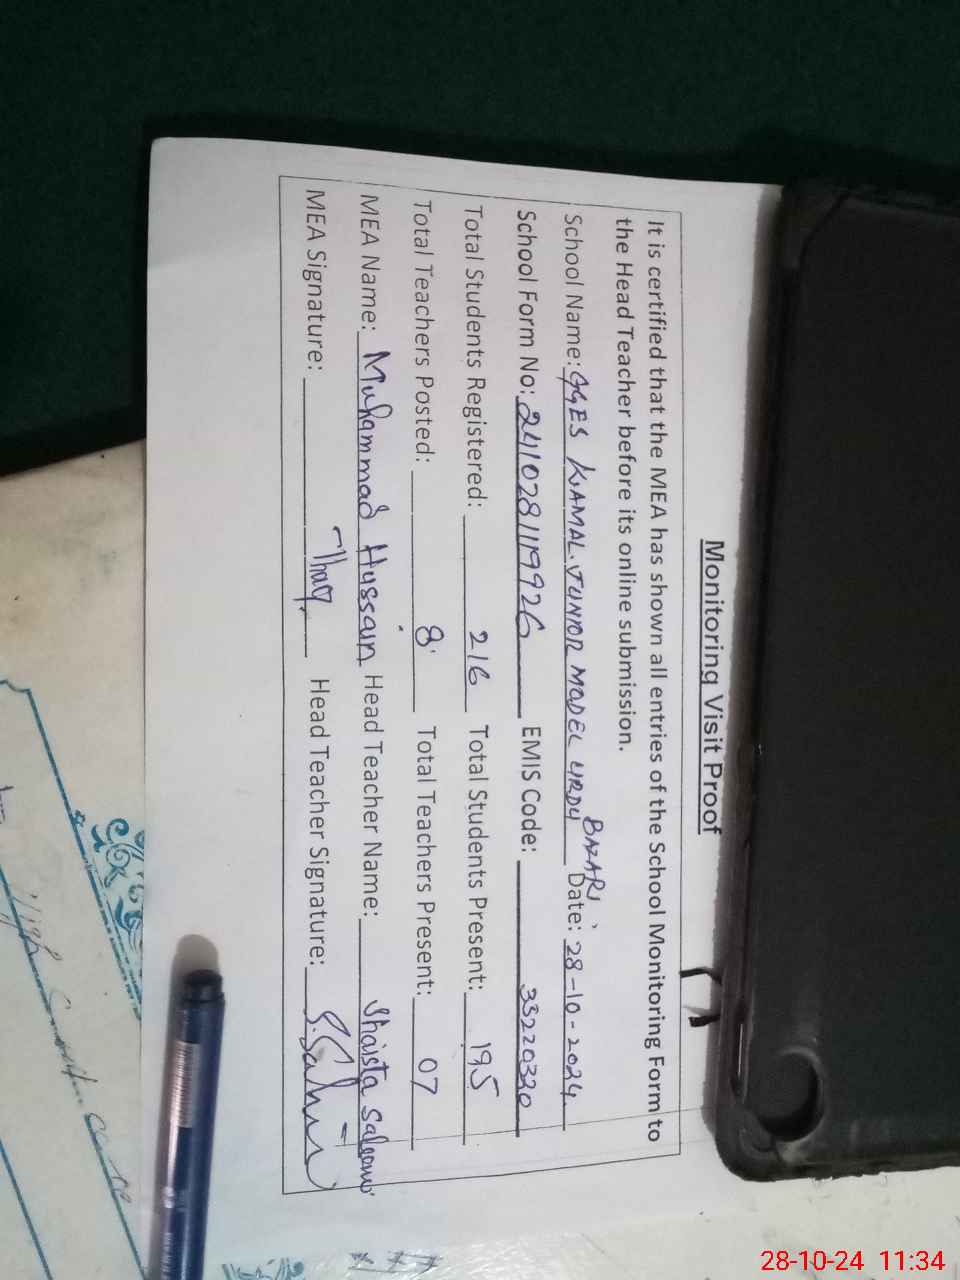 Monitoring Visit Proof
It is certified that the MEA has shown all entries of the School Monitoring Form to
the Head Teacher before its online submission.
School Name: GGES KAMAL JUNIOR MODEL URDU BAZAR Date: 28-10-2024
School Form No: 241028119926 EMIS Code: 33220320
Total Students Registered: 216 Total Students Present: 195
Total Teachers Posted: 8 Total Teachers Present: 07
MEA Name: Muhammad Hussain Head Teacher Name: Shaista
MEA Signature: Head Teacher Signature:
28-10-24 11:34